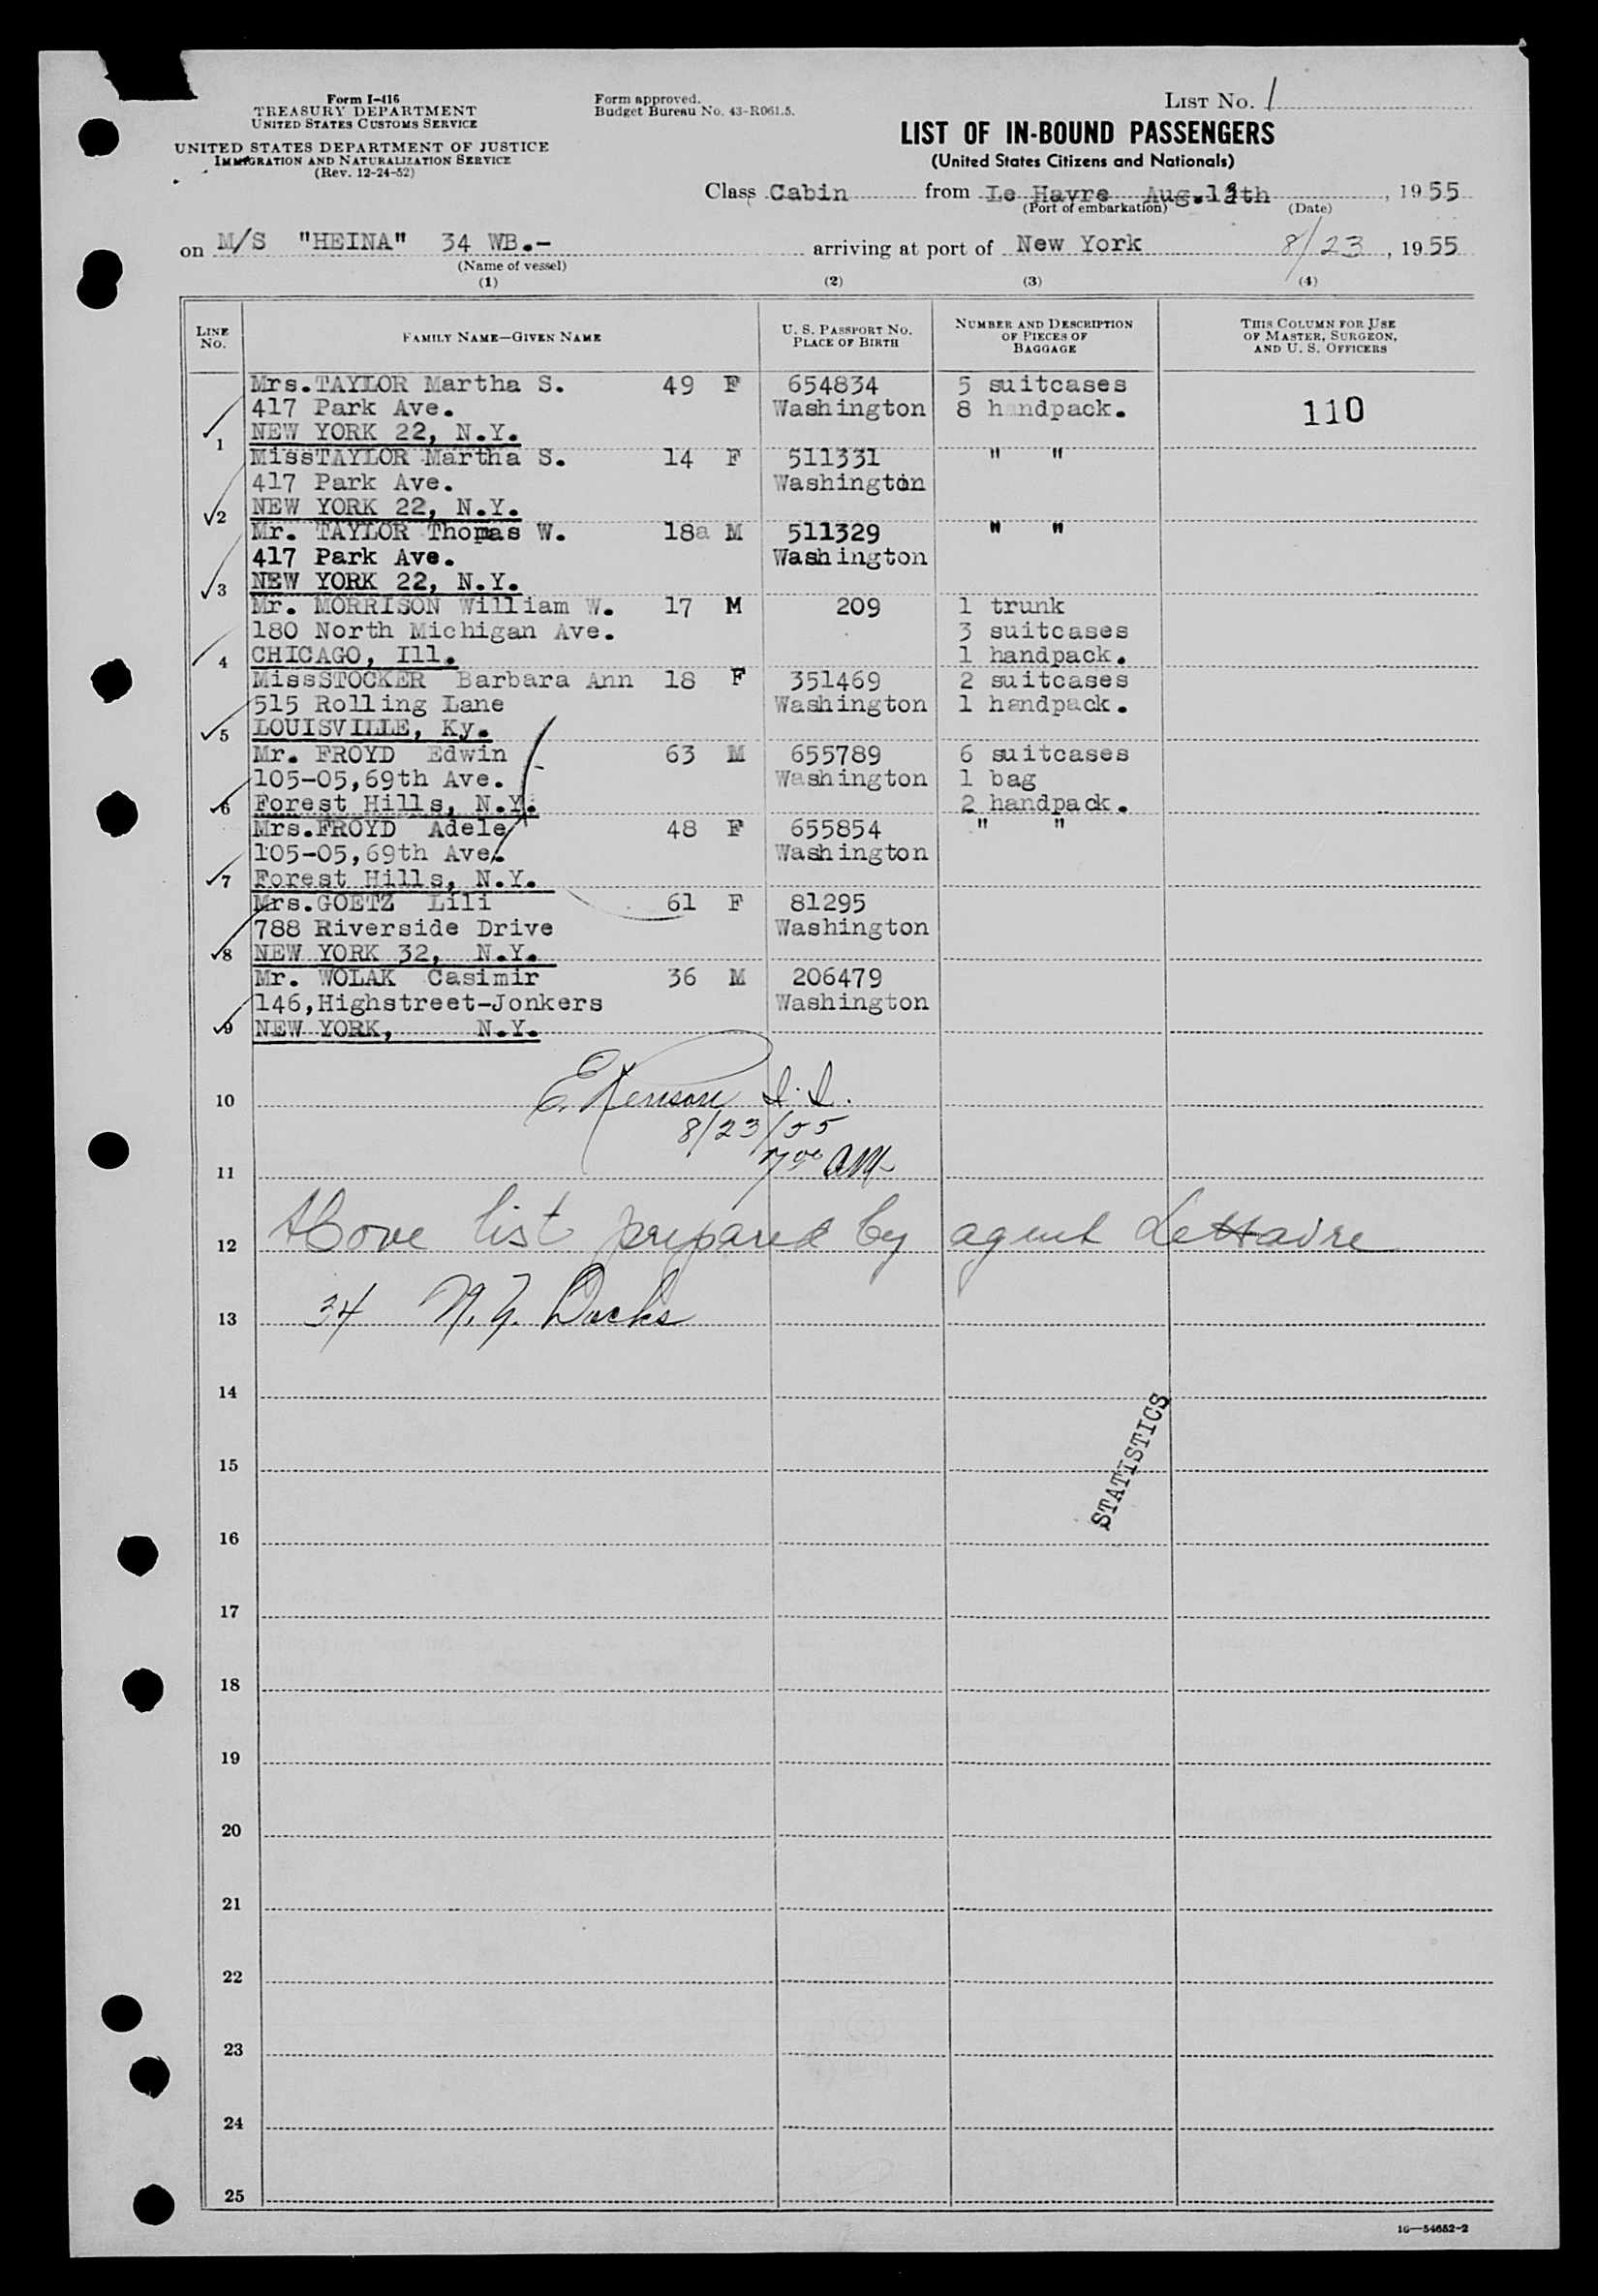 Form I-416
TREASURY DEPARTMENT
UNITED STATES CUSTOMS SERVICE
UNITED STATES DEPARTMENT OF JUSTICE
IMMIGRATION AND NATURALIZATION SERVICE
(Rev. 12-24-52)
Form approved.
Budget Bureau No. 43-R061.5.
LIST No. 1
LIST OF IN-BOUND PASSENGERS
(United States Citizens and Nationals)
Class Cabin from Le Havre Aug. , 1955
(Port of embarkation) (Date)
on M/S "HEINA" 34 WB.- arriving at port of New York 8/23, 1955
(Name of vessel)
(1) (2) (3) (4)
LINE No. FAMILY NAME—GIVEN NAME U. S. PASSPORT No. PLACE OF BIRTH NUMBER AND DESCRIPTION OF PIECES OF BAGGAGE THIS COLUMN FOR USE OF MASTER, SURGEON, AND U. S. OFFICERS
Mrs.TAYLOR Martha S. 49 F 654834 5 suitcases
417 Park Ave. Washington 8 handpack. 110
1 NEW YORK 22, N.Y.
MissTAYLOR Martha S. 14 F 511331 " "
417 Park Ave. Washington
2 NEW YORK 22, N.Y.
Mr. TAYLOR Thomas W. 18a M 511329 " "
417 Park Ave. Washington
3 NEW YORK 22, N.Y.
Mr. MORRISON William W. 17 M 209 1 trunk
180 North Michigan Ave. 3 suitcases
4 CHICAGO, Ill. 1 handpack.
MissSTOCKER Barbara Ann 18 F 351469 2 suitcases
515 Rolling Lane Washington 1 handpack.
5 LOUISVILLE, Ky.
Mr. FROYD Edwin 63 M 655789 6 suitcases
105-05,69th Ave. Washington 1 bag
6 Forest Hills, N.Y. 2 handpack.
Mrs.FROYD Adele 48 F 655854 " "
105-05,69th Ave. Washington
7 Forest Hills, N.Y.
Mrs.GOETZ Lili 61 F 81295
788 Riverside Drive Washington
8 NEW YORK 32, N.Y.
Mr. WOLAK Casimir 36 M 206479
146,Highstreet-Jonkers Washington
9 NEW YORK, N.Y.
10 E. I.I.
8/23/55
11 700 AM
12 Above list prepared by agent LeHavre
13 34 N.Y. Docks
14
STATISTICS
15
16
17
18
19
20
21
22
23
24
25
16—54652-2